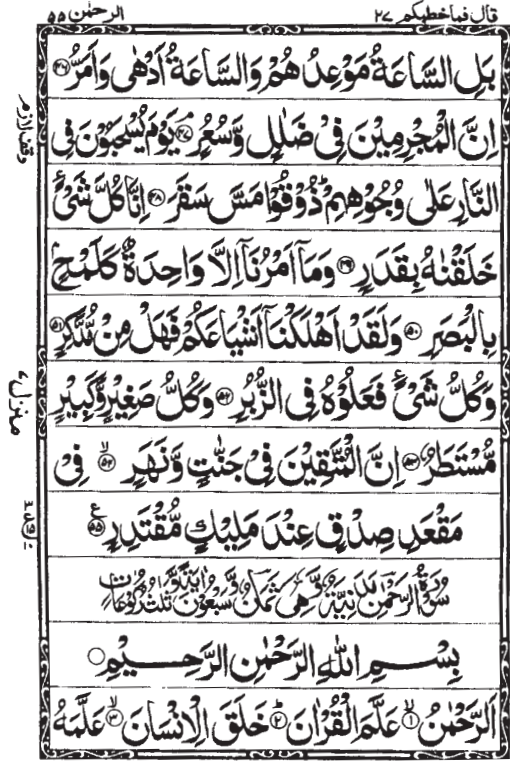 قال فما خطبكم ٢٧
الرحمٰن ٥٥
بَلِ السَّاعَةُ مَوْعِدُهُمْ وَالسَّاعَةُ اَدْهٰى وَاَمَرُّ ﴿۴۶﴾
اِنَّ الْمُجْرِمِيْنَ فِيْ ضَلٰلٍ وَّسُعُرٍ ﴿۴۷﴾ يَوْمَ يُسْحَبُوْنَ فِي
النَّارِ عَلٰى وُجُوْهِهِمْ ؕ ذُوْقُوْا مَسَّ سَقَرَ ﴿۴۸﴾ اِنَّا كُلَّ شَيْءٍ
خَلَقْنٰهُ بِقَدَرٍ ﴿۴۹﴾ وَمَاۤ اَمْرُنَاۤ اِلَّا وَاحِدَةٌ كَلَمْحٍۭ
بِالْبَصَرِ ﴿۵۰﴾ وَلَقَدْ اَهْلَكْنَاۤ اَشْيَاعَكُمْ فَهَلْ مِنْ مُّدَّكِرٍ ﴿۵۱﴾
وَكُلُّ شَيْءٍ فَعَلُوْهُ فِي الزُّبُرِ ﴿۵۲﴾ وَكُلُّ صَغِيْرٍ وَّكَبِيْرٍ
مُّسْتَطَرٌ ﴿۵۳﴾ اِنَّ الْمُتَّقِيْنَ فِيْ جَنّٰتٍ وَّنَهَرٍ ۙ﴿۵۴﴾ فِيْ
مَقْعَدِ صِدْقٍ عِنْدَ مَلِيْكٍ مُّقْتَدِرٍ ﴿۵۵﴾ ع
سُوْرَةُ الرَّحْمٰنِ مَدَنِيَّةٌ وَّهِيَ ثَمَانٌ وَّسَبْعُوْنَ اٰيَةً وَّثَلٰثُ رُكُوْعَاتٍ
بِسْمِ اللهِ الرَّحْمٰنِ الرَّحِيْمِ
اَلرَّحْمٰنُ ۙ﴿۱﴾ عَلَّمَ الْقُرْاٰنَ ؕ﴿۲﴾ خَلَقَ الْاِنْسَانَ ۙ﴿۳﴾ عَلَّمَهُ
وقف لازم
منزل ۷